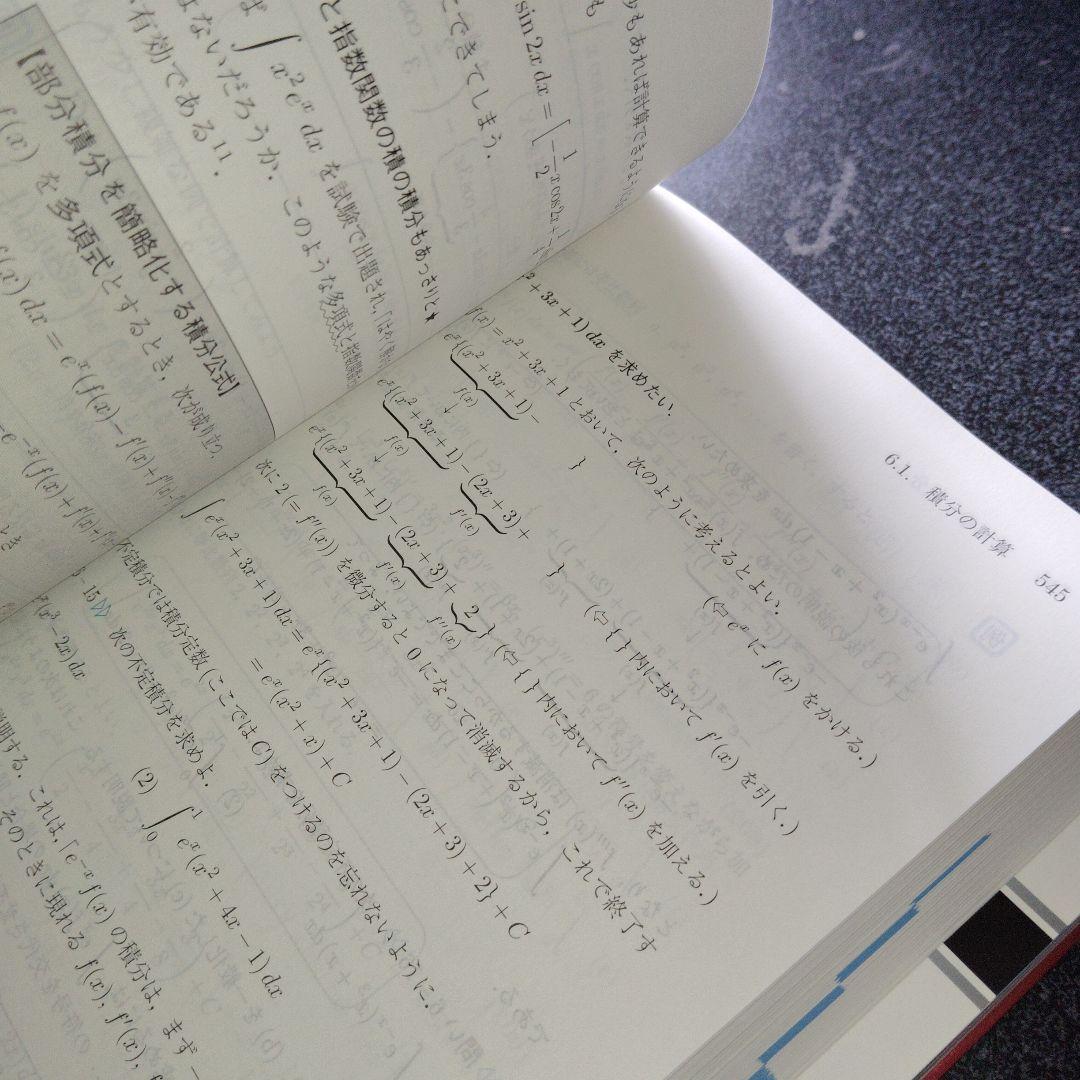 もあれば計算できるよう
sin 2x dx = [ -1/2 x cos 2x + 1/
できてしまう.
と指数関数の積の積分もあっさりと★
ば ∫ x²eˣ dx を試験で出題され,「はや
はないだろうか. このような多項式と指数関数
有効である¹¹.
【部分積分を簡略化する積分公式】
f(x) を多項式とするとき, 次が成り立つ.
f(x) dx = eˣ(f(x) − f′(x) + f″(x) −
−e⁻ˣ(f(x) + f′(x) + f″
とき
6.1. 積分の計算 545
² + 3x + 1) dx を求めたい.
f(x) = x² + 3x + 1 とおいて, 次のように考えるとよい.
eˣ{(x² + 3x + 1) − } (⇦ eˣ に f(x) をかける.)
f(x)
↓
eˣ{(x² + 3x + 1) − (2x + 3) + } (⇦ { } 内において f′(x) を引く.)
f(x) f′(x)
↓
eˣ{(x² + 3x + 1) − (2x + 3) + 2 } (⇦ { } 内において f″(x) を加える.)
f(x) f′(x) f″(x)
次に 2 (= f″(x)) を微分すると 0 になって消滅するから, これで終了す
∫ eˣ(x² + 3x + 1) dx = eˣ{(x² + 3x + 1) − (2x + 3) + 2} + C
= eˣ(x² + x) + C
不定積分では積分定数 (ここでは C) をつけるのを忘れないように.
15 次の不定積分を求めよ.
(x³ − 2x) dx (2) ∫₀¹ eˣ(x² + 4x − 1) dx
明する. これは,「e⁻ˣf(x) の積分は, まず −
そのときに現れる f(x), f′(x),